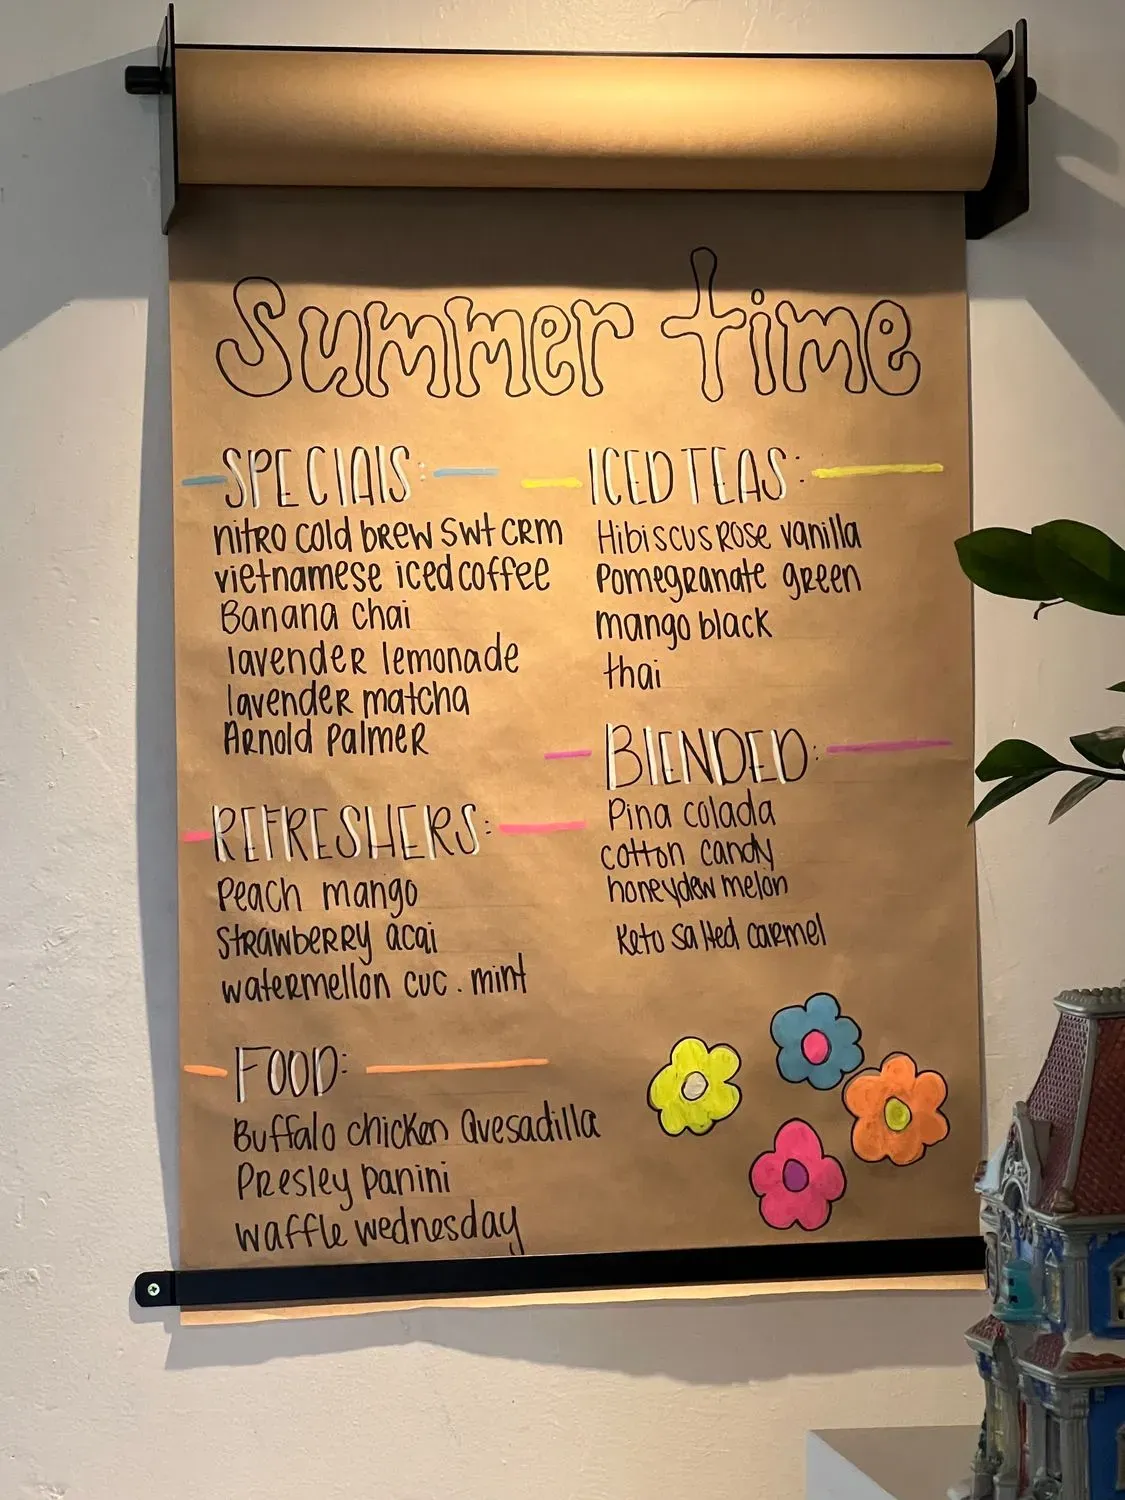 Summer time
SPECIALS:
nitro cold brew swt crm
vietnamese iced coffee
Banana chai
lavender lemonade
lavender matcha
Arnold palmer
REFRESHERS:
peach mango
strawberry acai
watermellon cuc. mint
FOOD:
Buffalo chicken Quesadilla
Presley panini
waffle wednesday
ICED TEAS:
Hibiscus Rose vanilla
Pomegranate green
mango black
thai
BLENDED:
Pina colada
cotton candy
honeydew melon
Keto salted carmel